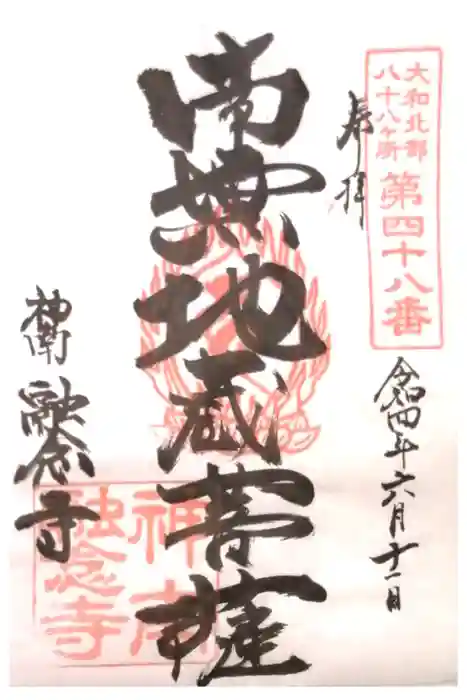 大和北部
八十八ケ所 第四十八番
奉拝
令和四年六月十一日
南無地蔵菩薩
神南 融念寺
神南
融念寺